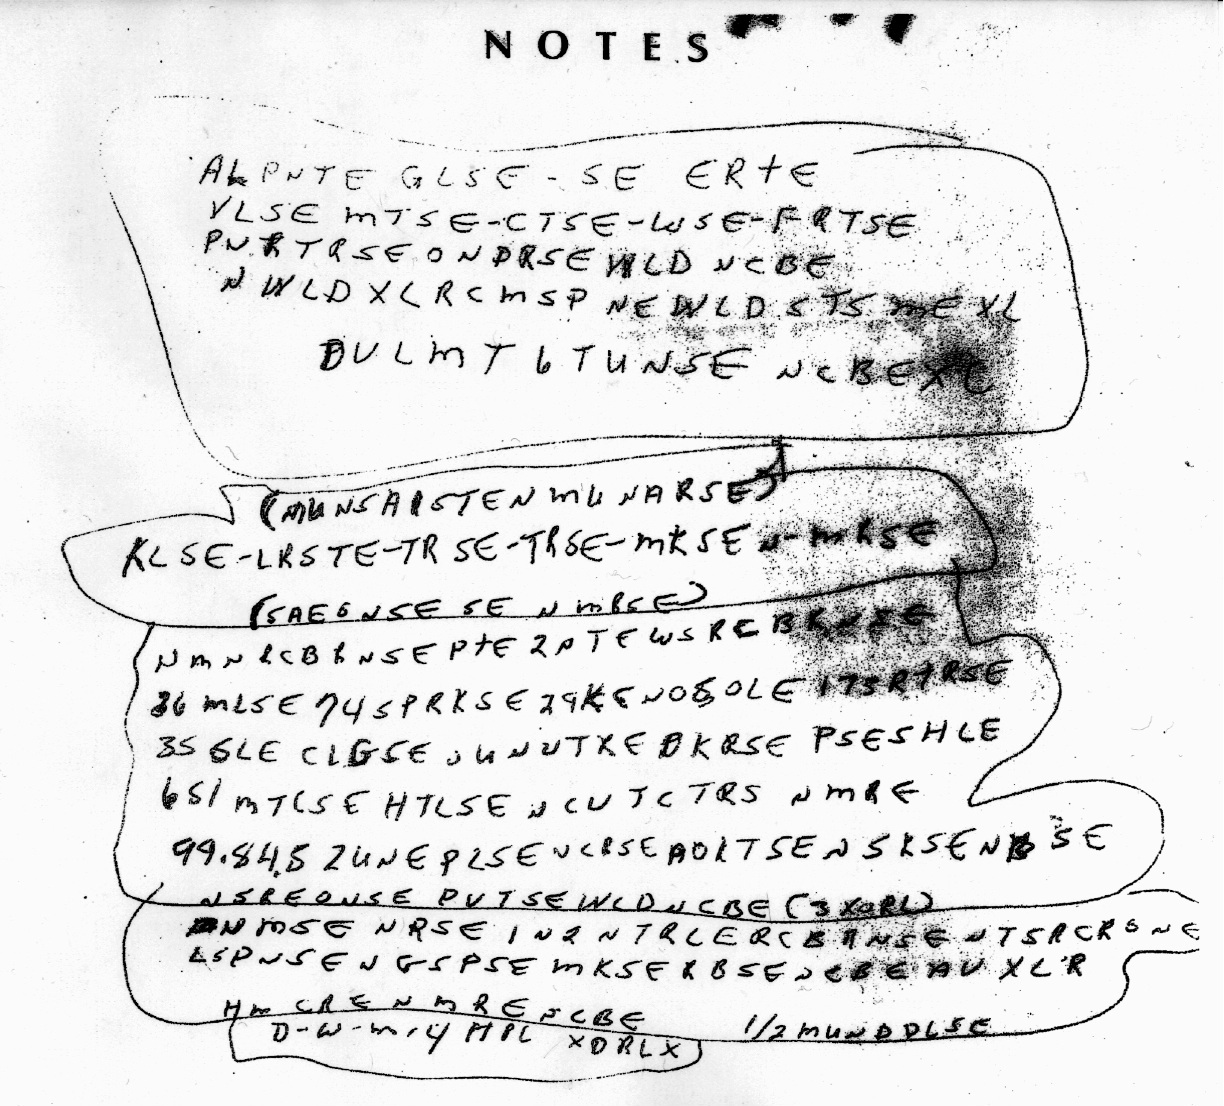 NOTES
ALPNTE GLSE - SE ERTE
VLSE MTSE-CTSE-WSE-FRTSE
PNRTRSEONDRSEWLD NCBE
NWLDXLRCMSP NEWLDSTSMEXL
DULMT6TUNSE NCBEXC
(MUNSAISTENMUNARSE)
KLSE-LRSTE-TRSE-TRSE-MKSEN-MRSE
(SAEGNSE SE NMBSE)
NMNRCBRNSEPTE2PTEWSRCBRNSE
36MLSE74SPRKSE29KENOSOLE173RTRSE
35GLE CLGSE UUNUTXEDKRSE PSESHLE
651MTCSE HTLSE NCUTCTRS NMRE
99.84.5 ZUNEPLSENCRSEAOKTSENSKSENBSE
NSREONSE PUTSEWLDNCBE (3XORL)
DNMSE NRSE IN2NTRLERCBRNSENTSRCRONE
LSPNSENGSPSEMKSERBSENCBEAUXL'R
HMCRENMRENCBE 1/2MUNDDLSE
D-W-M-4 HPL XDRLX